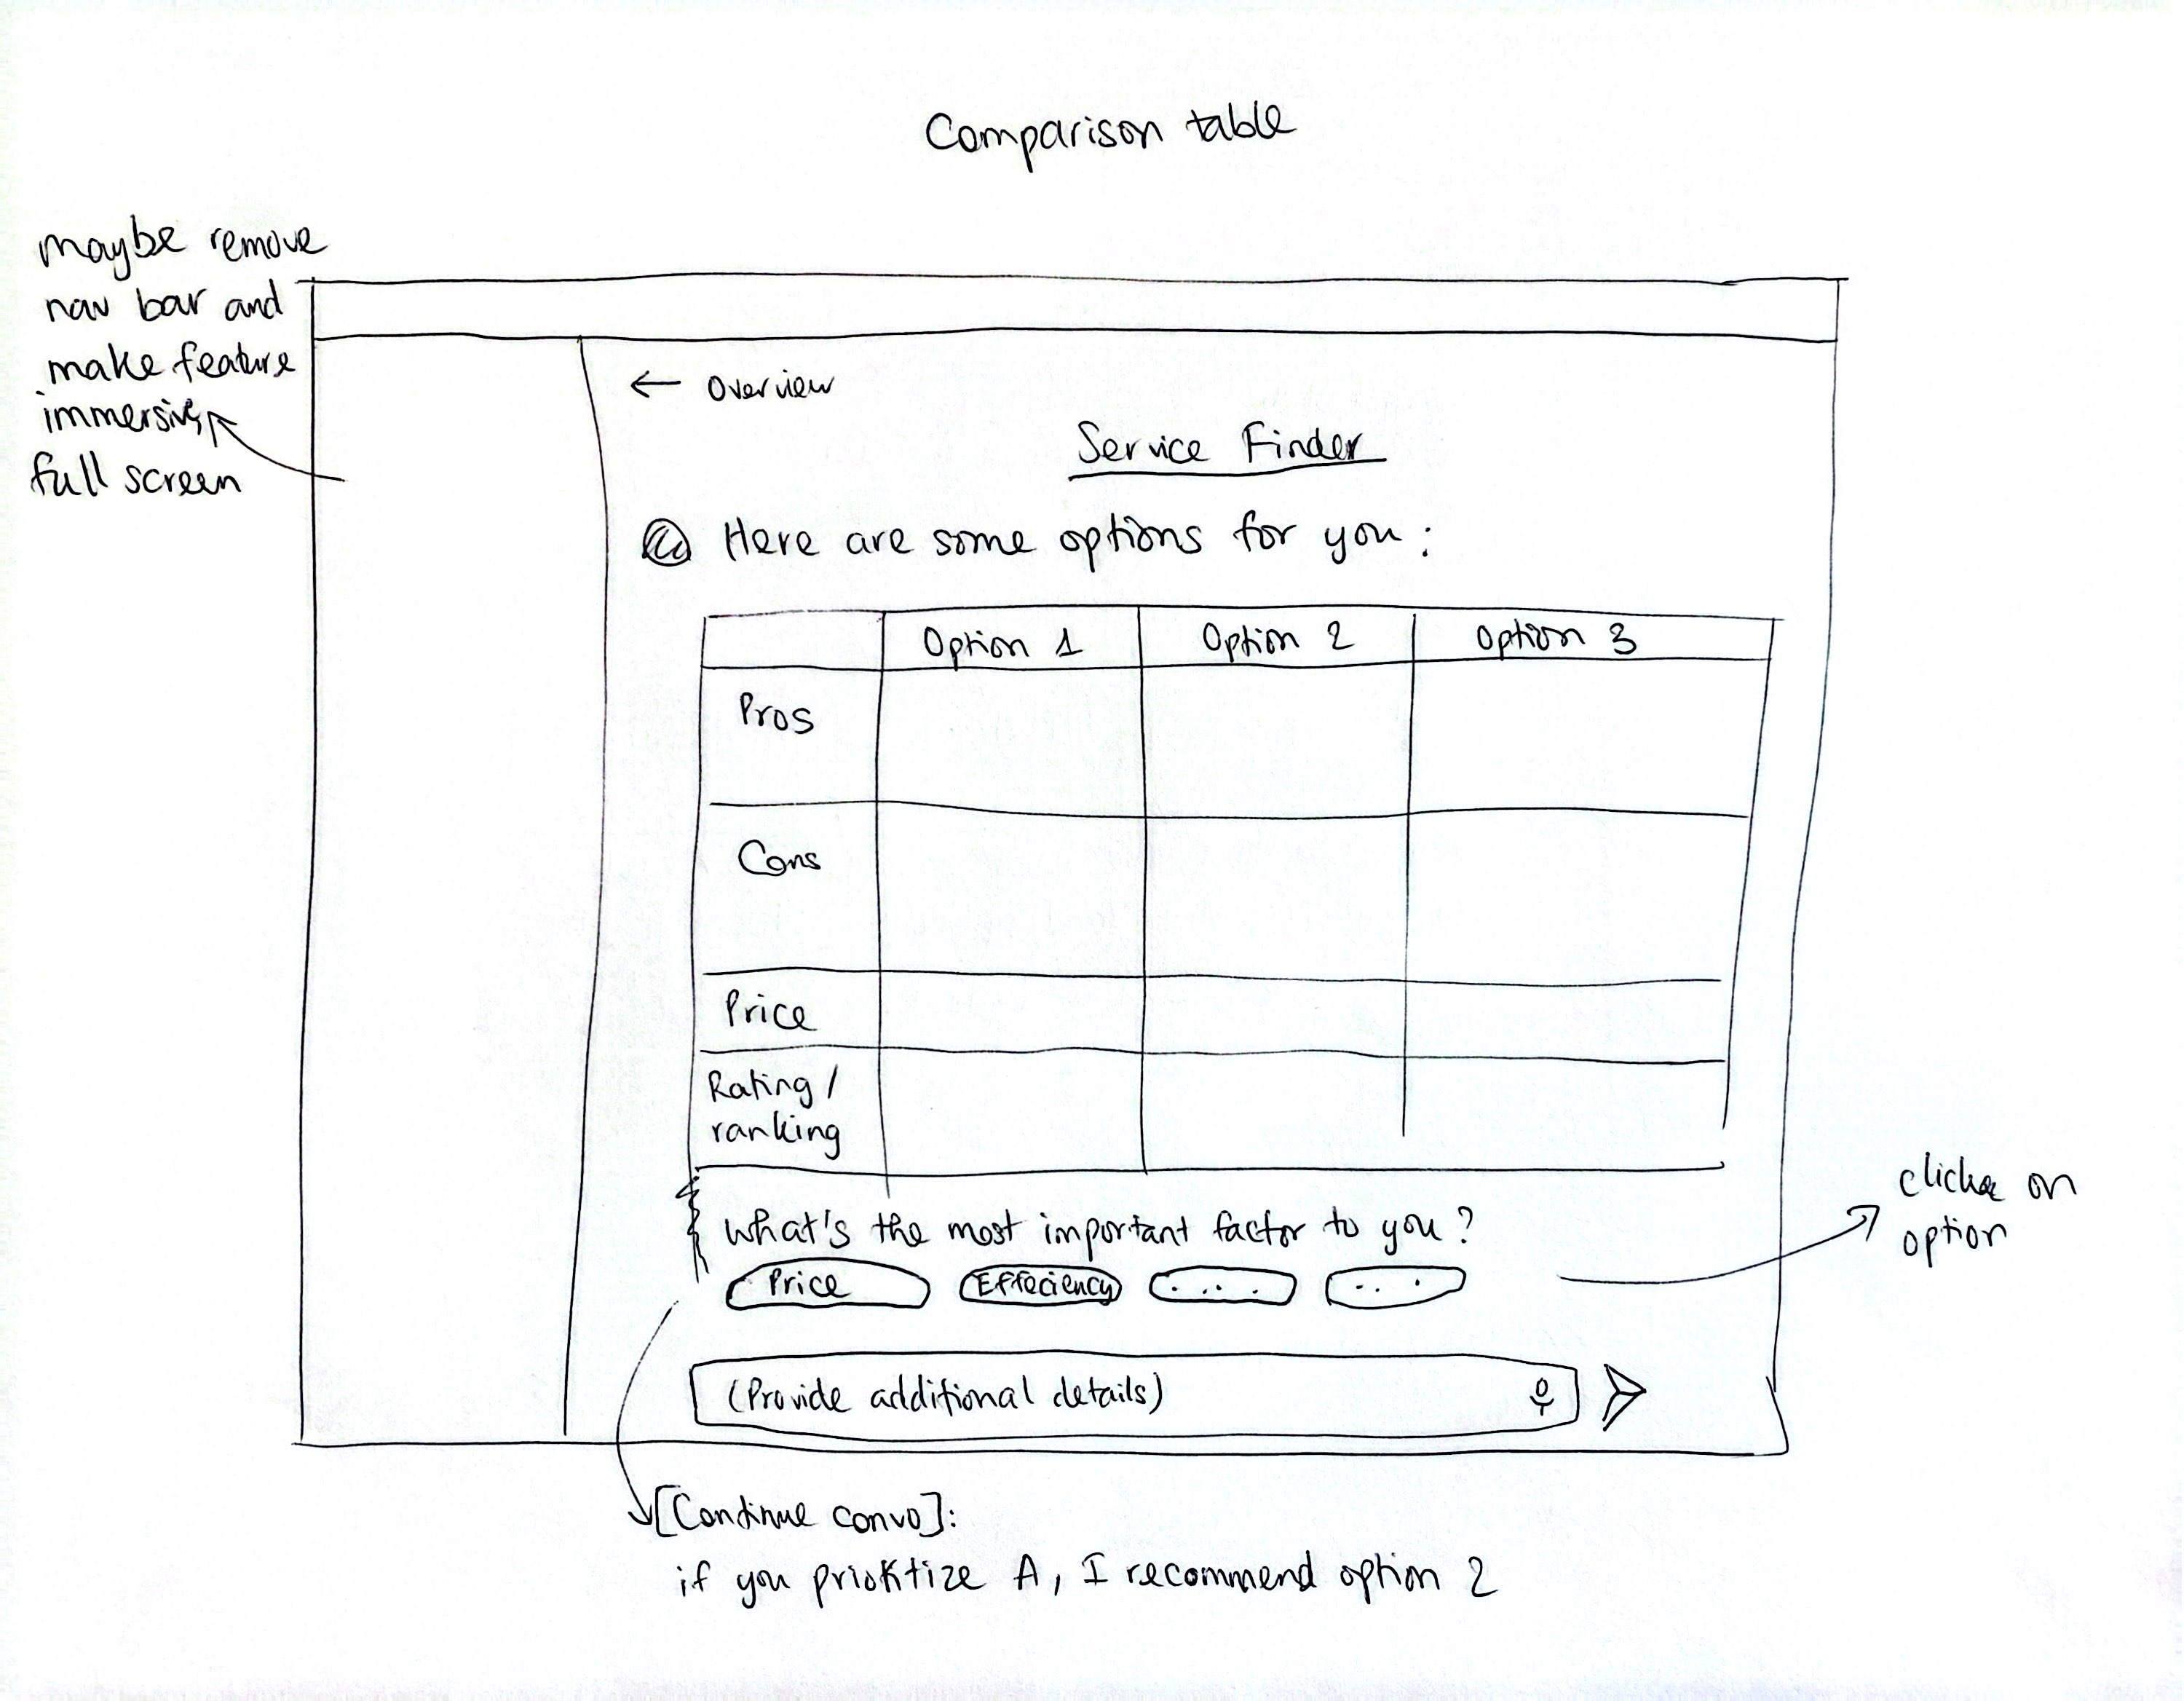 Comparison table
maybe remove
nav bar and
make feature
immersive
full screen
← Overview
Service Finder
Here are some options for you :
Option 1 Option 2 Option 3
Pros
Cons
Price
Rating /
ranking
What's the most important factor to you ?
Price Effeciency . .. . .. .
(Provide additional details)
click on
option
[Continue convo]:
if you priotitize A, I recommend option 2